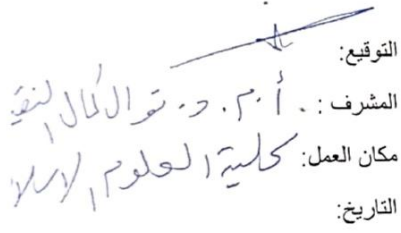 التوقيع:
المشرف : أ.م.د. نوال كمال
مكان العمل: كلية العلوم الاسلا
التاريخ: